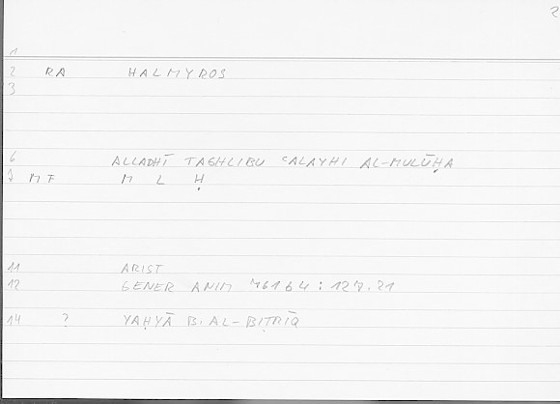 2
1
2 RA HALMYROS
3
6 ALLADHĪ TAGHLIBU ʿALAYHI AL-MULŪḤA
7 MF M L Ḥ
11 ARIST
12 GENER ANIM 761b4 : 127.21
14 ? YAḤYĀ B. AL-BIṬRĪQ